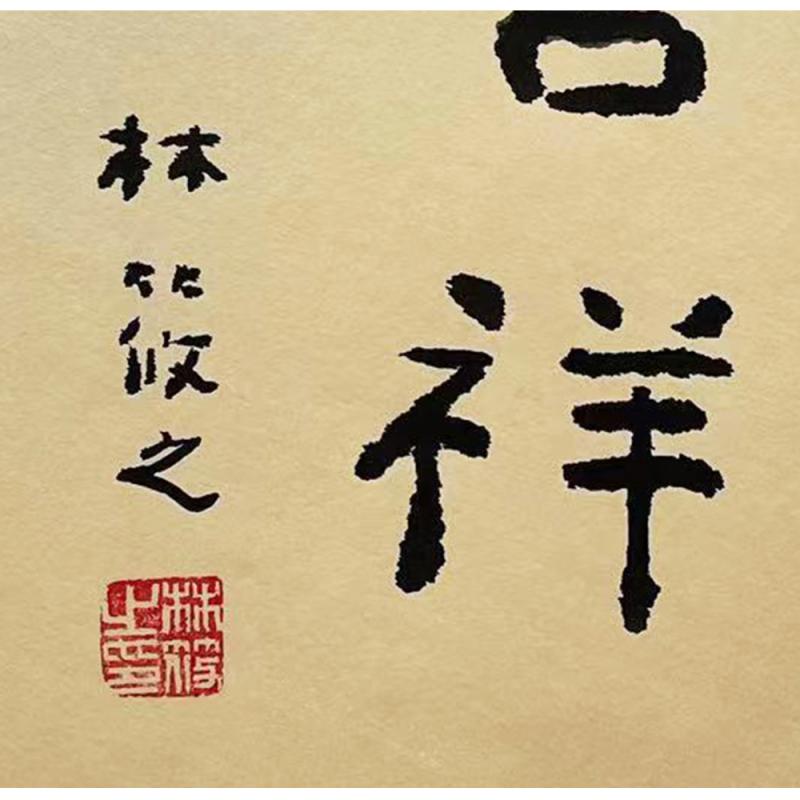 祥
林筱之
林筱之印